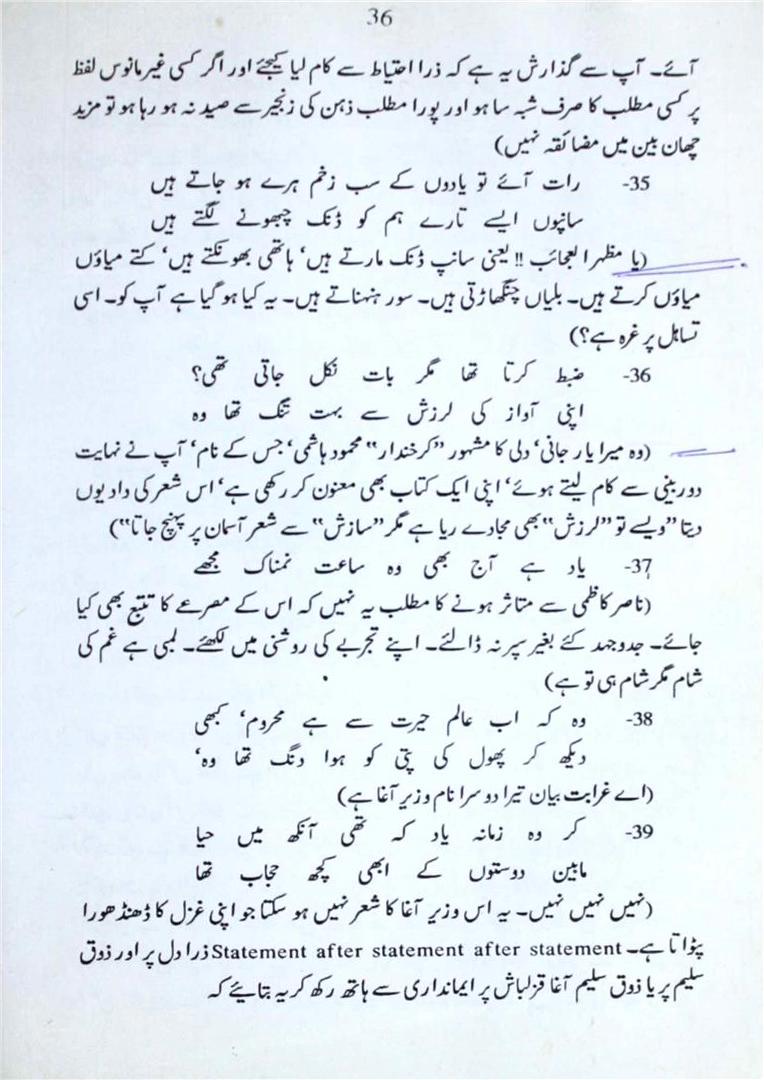 36
آئے۔ آپ سے گذارش یہ ہے کہ ذرا احتیاط سے کام لیا کیجئے اور اگر کسی غیر مانوس لفظ
پر کسی مطلب کا صرف شبہ سا ہو اور پورا مطلب ذہن کی زنجیر سے صید نہ ہو رہا ہو تو مزید
چھان بین میں مضائقہ نہیں)
35- رات آئے تو یادوں کے سب زخم ہرے ہو جاتے ہیں
سانپوں ایسے تارے ہم کو ڈنک چبھونے لگتے ہیں
(یا مظہر العجائب !! یعنی سانپ ڈنک مارتے ہیں، ہاتھی بھونکتے ہیں، کتے میاؤں
میاؤں کرتے ہیں۔ بلیاں چنگھاڑتی ہیں۔ سور ہنہناتے ہیں۔ یہ کیا ہو گیا ہے آپ کو۔ اسی
تساہل پر غرہ ہے؟)
36- ضبط کرتا تھا مگر بات نکل جاتی تھی؟
اپنی آواز کی لرزش سے بہت تنگ تھا وہ
(وہ میرا یار جانی، دلی کا مشہور ”کرخندار“ محمود ہاشمی، جس کے نام، آپ نے نہایت
دور بینی سے کام لیتے ہوئے، اپنی ایک کتاب بھی معنون کر رکھی ہے، اس شعر کی داد یوں
دیتا ”ویسے تو ”لرزش“ بھی مجا دے ریا ہے مگر ”سازش“ سے شعر آسمان پر پہنچ جاتا“)
37- یاد ہے آج بھی وہ ساعت نمناک مجھے
(ناصر کاظمی سے متاثر ہونے کا مطلب یہ نہیں کہ اس کے مصرعے کا تتبع بھی کیا
جائے۔ جدوجہد کئے بغیر سپر نہ ڈالئے۔ اپنے تجربے کی روشنی میں لکھئے۔ لمبی ہے غم کی
شام مگر شام ہی تو ہے)
38- وہ کہ اب عالم حیرت سے ہے محروم، کبھی
دیکھ کر پھول کی پتی کو ہوا دنگ تھا وہ،
(اے غرابت بیان تیرا دوسرا نام وزیر آغا ہے)
39- کر وہ زمانہ یاد کہ تھی آنکھ میں حیا
مابین دوستوں کے ابھی کچھ حجاب تھا
(نہیں نہیں نہیں۔ یہ اس وزیر آغا کا شعر نہیں ہو سکتا جو اپنی غزل کا ڈھنڈھورا
پٹواتا ہے۔ Statement after statement after statement ذرا دل پر اور ذوق
سلیم پر یا ذوق سلیم آغا قزلباش پر ایمانداری سے ہاتھ رکھ کر یہ بتایئے کہ